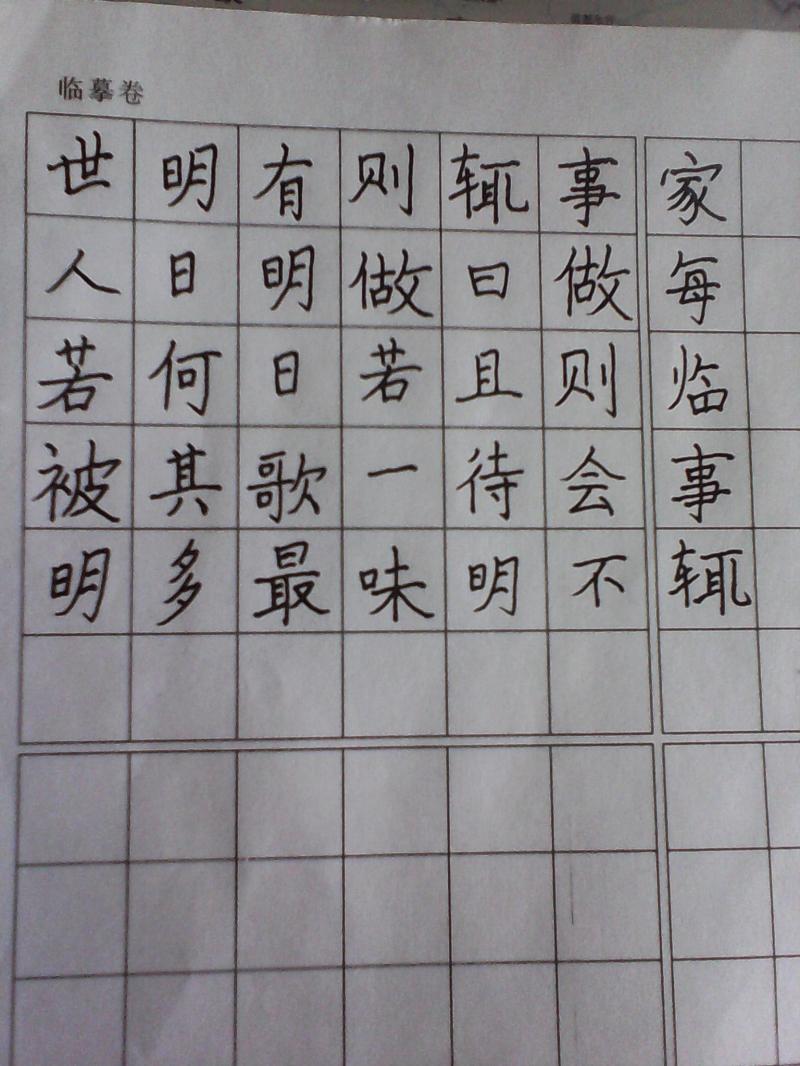 临摹卷
家每临事辄
事做则会不
辄曰且待明
则做若一味
有明日歌最
明日何其多
世人若被明